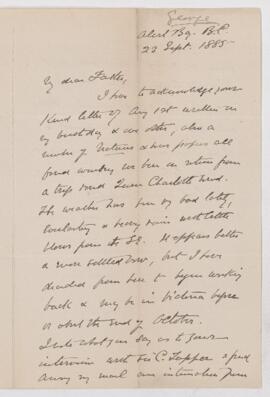 George
Alert Bay. B.C.
23 Sept. 1885
My dear Father,
I have to acknowledge your
kind letter of Aug 1st written on
my birthday & one later, also a
number of Nations & news papers all
found awaiting us here on return from
a trip round Queen Charlotte Sound.
The weather has been very bad lately,
continuous & heavy rain with little
blows from the S.E. It appears better
& more settled now, but I have
decided from here to begin working
back & may be in Victoria before
or about the end of October.
I note what you say as to your
interview with Sir C. Tupper & find
among my mail an intimation from